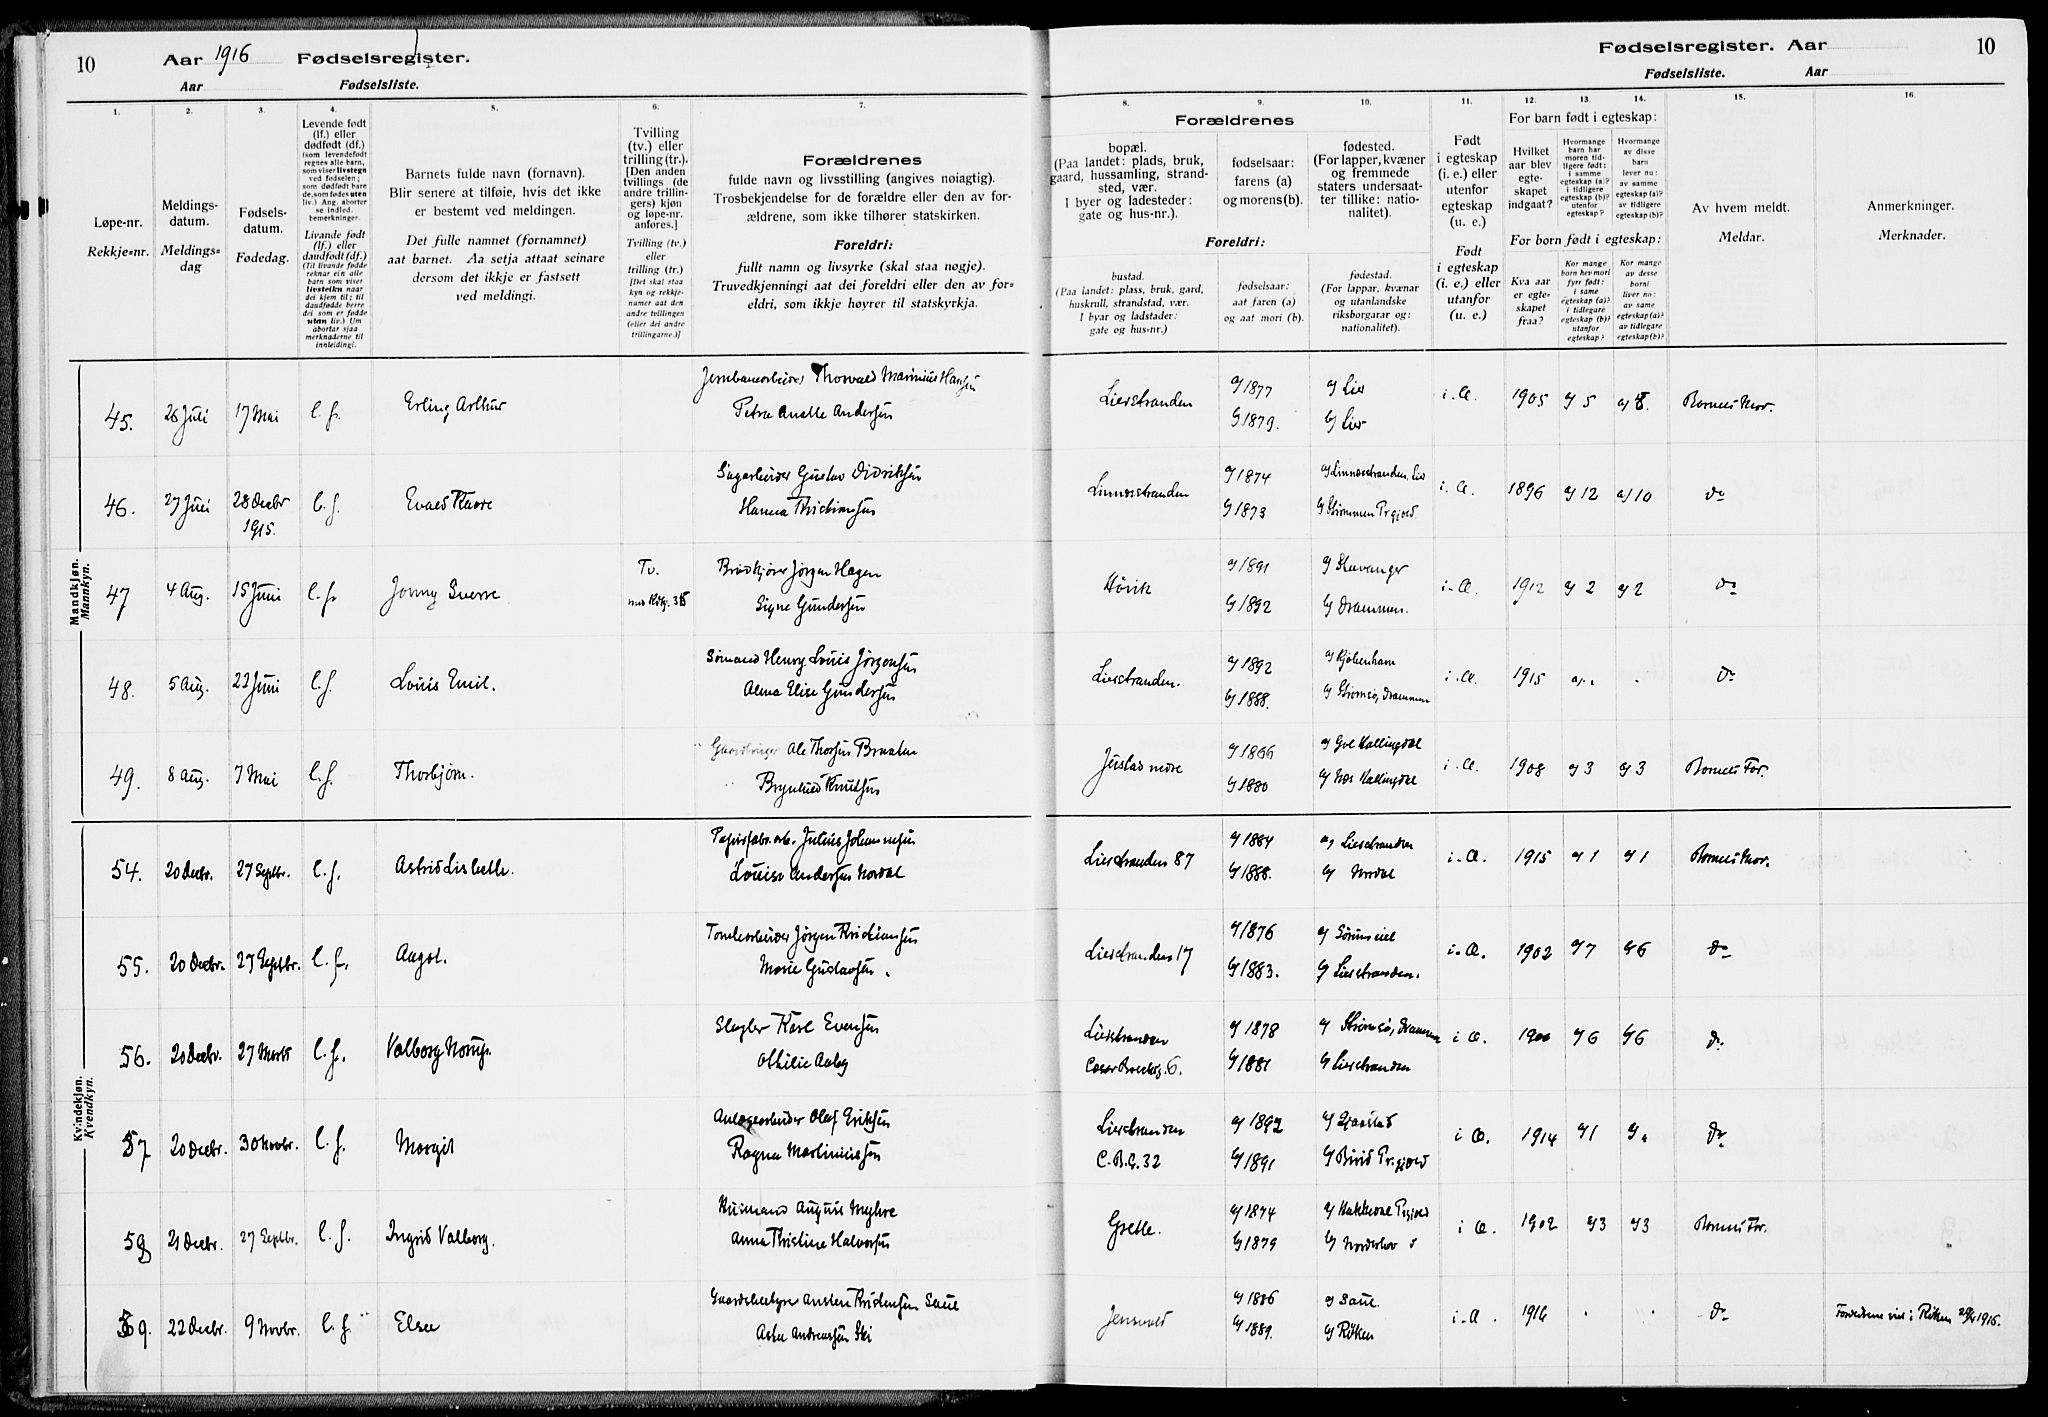 10 Aar 1916 Fødselsregister.
Aar Fødselsliste.
Fødselsregister. Aar 10
Fødselsliste. Aar
1. 2. 3. 4. 5. 6. 7. 8. 9. 10. 11. 12. 13. 14. 15. 16.
Løpe-nr.
Rekkje-nr.
Meldings-
datum.
Meldings-
dag
Fødsels-
datum.
Fødedag.
Levende født
(lf.) eller
dødfødt (df.)
(som levendefødt
regnes alle barn,
som viser livstegn
ved fødselen;
som dødfødt bare
de, som fødes uten
liv.) Ang. aborter
se indled.
bemerkninger.
Livande født
(lf.) eller
daudfødt (df.)
(Til livande fødde
reknar ein alle
barn som viser
livsteikn naar
dei kjem til; til
daudfødde berre
dei som er fødde
utan liv.) Um
abortar sjaa
merknaderne til
innleidingi.
Barnets fulde navn (fornavn).
Blir senere at tilføie, hvis det ikke
er bestemt ved meldingen.
Det fulle namnet (fornamnet)
aat barnet. Aa setja attaat seinare
dersom det ikkje er fastsett
ved meldingi.
Tvilling
(tv.) eller
trilling (tr.).
[Den anden
tvillings (de
andre trillin-
gers) kjøn
og løpe-nr.
anføres.]
Tvilling (tv.)
eller
trilling (tr.)
[Det skal staa
kyn og rekkje-
numer aat den
andre tvillingen
(eller dei andre
trillingarne.)]
Forældrenes
fulde navn og livsstilling (angives nøiagtig).
Trosbekjendelse for de forældre eller den av for-
ældrene, som ikke tilhører statskirken.
Foreldri:
fullt namn og livsyrke (skal staa nøgje).
Truvedkjenningi aat dei foreldri eller den av for-
eldri, som ikkje høyrer til statskyrkja.
Forældrenes
bopæl.
(Paa landet: plads, bruk,
gaard, hussamling, strand-
sted, vær.
I byer og ladesteder:
gate og hus-nr.).
fødselsaar:
farens (a)
og morens (b).
fødested.
(For lapper, kvæner
og fremmede
staters undersaat-
ter tillike: natio-
nalitet).
Foreldri:
bustad.
(Paa landet: plass, bruk, gard,
huskrull, strandstad, vær.
I byar og ladstader:
gate og hus-nr.)
fødselsaar:
aat faren (a)
og aat mori (b).
fødestad.
(For lappar, kvænar
og utanlandske
riksborgarar og:
nationalitet).
Født
i egteskap
(i. e.) eller
utenfor
egteskap
(u. e.)
Født
i egteskap
(i. e.) eller
utanfor
(u. e.)
For barn født i egteskap:
Hvilket
aar blev
egte-
skapet
indgaat?
Hvormange
barn har
moren tid-
ligere født:
i samme
egteskap (a)?
i tidligere
egteskap (b)?
utenfor
egteskap?
Hvormange
av disse
barn
lever nu:
av samme
egteskap (a)?
av tidligere
egteskap (b)?
For born født i egteskap:
Kva aar
er egte-
skapet
fraa?
Kor mange
born hev mori
fyrr født:
i same
egteskap (a)?
i tidlegare
egteskap (b)?
utanfor
egteskap?
Kor mange
av desse
borni
liver no:
av same
egteskap (a)?
av tidlegare
egteskap (b)?
Av hvem meldt.
Meldar.
Anmerkninger.
Merknader.
Mandkjøn.
Mannkyn.
45. 26 Juli 17 Mai l. f. Erling Arthur Jernbanearbeider Thorvald Marinius Hansen Lierstranden a) 1877 a) Lier i. Æ. 1905 a) 5 Barnets Mor.
Petra Anette Andersen b) 1879. b) Lier
46. 27 Juli 28 Decbr l. f. Evald Kaare Sagarbeider Gustav Didriksen Linnesstranden a) 1874 a) Linnesstranden, Lier i. Æ. 1896 a) 12 a) 10 do
1915. Hanna Kristiansen b) 1873 b) Strømmen Prgjeld
47 4 Aug. 15 Juni l. f. Jonny Sverre Tv. Brødkjører Jørgen Hagen Høvik a) 1891 a) Stavanger i. Æ. 1912 a) 2 a) 2 do
Signe Gundersen b) 1892 b) Drammen.
48. 5 Aug. 22 Juni l. f. Louis Emil. Sømand Henry Louis Jørgensen Lierstranden. a) 1892 a) Kjøbenham i. Æ. 1915 do
Alma Elise Gundersen b) 1888. b) Strømsø, Drammen
49. 8 Aug. 7 Mai l. f. Thorbjørn. Gaardbruger Ole Thorsen Braaten Justad nedre a) 1866 a) Gol Hallingdal i. Æ. 1908 a) 3 a) 3 Barnets Far.
Brynhild Knutsen b) 1880 b) Nes Hallingdal
Kvindekjøn.
Kvendkyn.
54. 20 Decbr. 27 Septbr. l. f. Astrid Lisbeth. Papirfabr.arb. Julius Johannesen Lierstranden 87 a) 1884 a) Lierstranden i. Æ. 1915 a) 1 a) 1 Barnets Mor.
Louise Andersen Nordal b) 1888. b) Nordal
55. 20 Decbr. 27 Septbr. l. f. Aagot. Tomtearbeider Jørgen Kristiansen Lierstranden 17 a) 1876 a) i. Æ. 1902 a) 7 a) 6 do
Marie Gustavsen. b) 1883. b) Lierstranden.
56. 20 Decbr. 27 Marts l. f. Valborg Slagter Karl Evensen Lierstranden a) 1878 a) Strømsø, Drammen i Æ. 1900 a) 6 a) 6 do
Othilie Aaby 6. b) 1881 b) Lierstranden
57 20 Decbr. 30 Novbr. l. f. Margit Anlægsarbeider Olaf Eriksen Lierstranden a) 1892 a) i Æ. 1914 a) 1 do
Ragna Martiniusen C. B. G. 32 b) 1891 b) Biri Prgjeld
58 21 Decbr. 27 Septbr. l. f. Ingrid Valborg. Husmand August Myhre Grette. a) 1874 a) Hakkedal Prgjeld i Æ. 1902 a) 3 a) 3 Barnets Far.
Anna Kristine Halvorsen b) 1879 b) Norderhov
59. 22 Decbr. 9 Novbr. l. f. Elsa Gaardsbestyrer Ansten Kristensen Saue Jensvold a) 1886 a) Saue. i. Æ. 1916 do Forældrene viet i Røken 1916.
Asta Andreassen Ski b) 1889. b) Røken